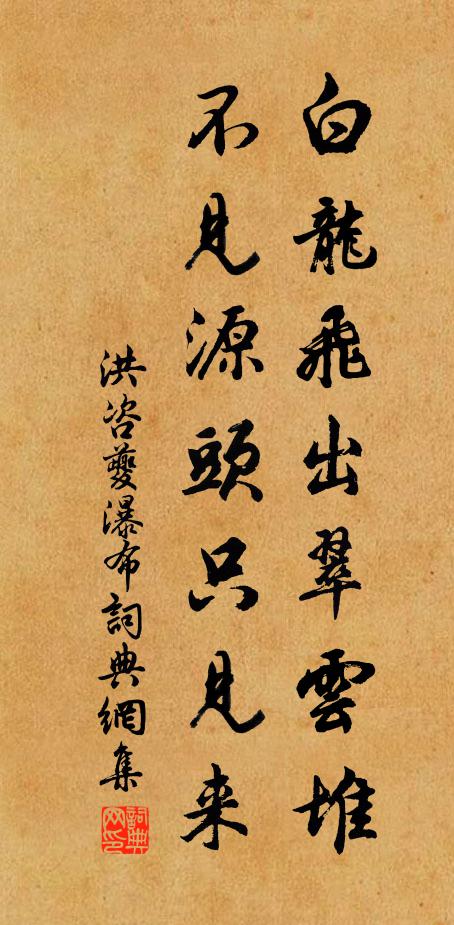 白龍飛出翠雲堆
不見源頭只見来
洪咨夔瀑布詞典網集
詞典网印